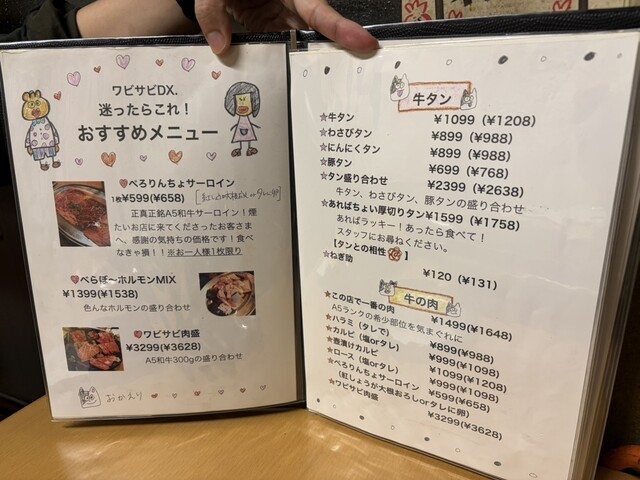 ワビサビDX.
迷ったらこれ！
おすすめメニュー
ぺろりんちょサーロイン
1枚¥599(¥658)
正真正銘A5和牛サーロイン！煙
たいお店に来てくださったお客さま
へ、感謝の気持ちの価格です！食べ
なきゃ損！！※お一人様1枚限り
べらぼ〜ホルモンMIX
¥1399(¥1538)
色んなホルモンの盛り合わせ
ワビサビ肉盛
¥3299(¥3628)
A5和牛300gの盛り合わせ
おかえり
牛タン
★牛タン ¥1099(¥1208)
★わさびタン ¥899(¥988)
★にんにくタン ¥899(¥988)
★豚タン ¥699(¥768)
★タン盛り合わせ ¥2399(¥2638)
牛タン、わさびタン、豚タンの盛り合わせ
★あればちょい厚切りタン¥1599(¥1758)
あればラッキー！あったら食べて！
スタッフにお尋ねください。
【タンとの相性◎】
★ねぎ助 ¥120(¥131)
牛の肉
★この店で一番の肉 ¥1499(¥1648)
A5ランクの希少部位を気まぐれに
★ハラミ(タレで) ¥899(¥988)
★カルビ(塩orタレ) ¥999(¥1098)
★壺漬けカルビ ¥1099(¥1208)
★ロース(塩orタレ) ¥999(¥1098)
★ぺろりんちょサーロイン ¥599(¥658)
(紅しょうが大根おろしorタレに卵)
★ワビサビ肉盛 ¥3299(¥3628)